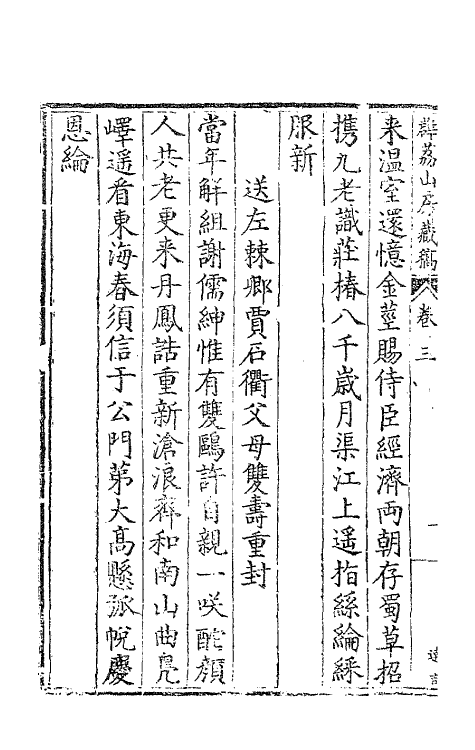 薜荔山房藏稿 卷三
来溫室還憶金莖賜侍臣經濟両朝存蜀草招
携九老識莊椿八千歲月渠江上遥指絲綸綵
服新
送左棘卿賈石衢父母雙壽重封
當年解組謝儒紳惟有雙鷗許自親一咲酡顔
人共老更来丹鳳誥重新滄浪齊和南山曲鳧
嶧遥看東海春須信于公門第大高懸弧帨慶
恩綸